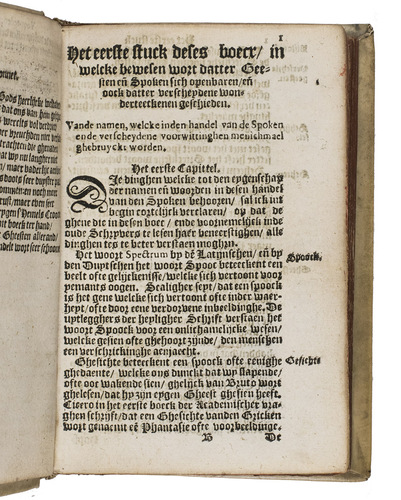 1
Het eerste stuck deses boecx/ in
welcke bewesen wort datter Gee-
sten eñ Spoken sich openbaren/ eñ
oock datter verscheydene won-
derteeckenen geschieden.
Vande namen, welcke inden handel van de Spoken
ende verscheydene voorwittinghen menichmael
ghebruyckt worden.
Het eerste Capittel.
DJe dinghen welcke tot den eygenschap
der namen eñ woorden in desen handel
van den Spoken behooren/ sal ick int
begin cortelijck verclaren/ op dat de
ghene die in desen boec/ ende voornemelijck inde
oude Schrijvers te lesen haer beneerstighen/ alle
dinghen tes te beter verstaen moghen.
Het woort Spectrum by dē Latijnschen/ eñ by
den Duytschen het woort Spoot beteeckent een
beelt ofte gelijckenisse/ welcke sich vertoont voor
yemants oogen. Scaligher seyt/ dat een spoock
is het gene welcke sich vertoont ofte inder waer-
heyt/ ofte door eene verdorvene inbeeldinghe. De
uytleggers der heyligher Schrift verstaen het
woort Spoock voor een onlichamelijcke wesen/
welcke gesien ofte ghehoort zijnde/ den menschen
een verschrickinghe aenjaecht.
Spoock.
Ghesichte beteeckent een spoock ofte eenighe
ghedaente/ welcke ons dunckt dat wy slapende/
ofte ooc wakende sien/ ghelijck van Bruto wort
ghelesen/ dat hy zijn eygen Gheest ghesien heeft.
Cicero in het eerste boeck der Academischer vra-
ghen schrijft/ dat een Ghesichte vanden Griecken
wort genaemt eē Phantasie ofte voorbeeldinge.
Gesichte
B
De